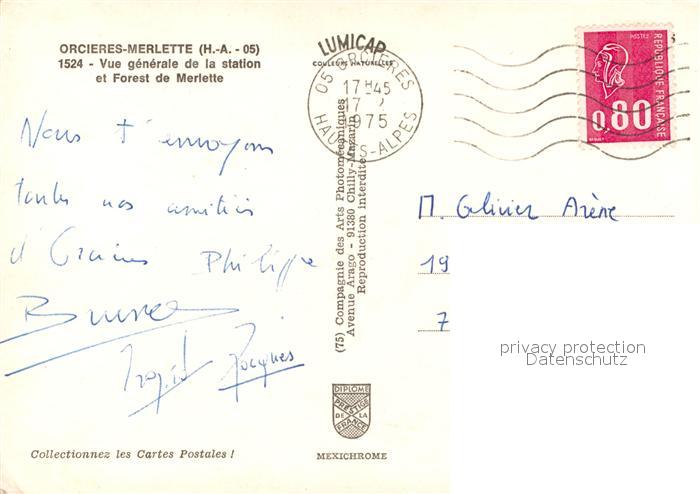 ORCIERES-MERLETTE (H.-A. - 05)
1524 - Vue générale de la station
et Forest de Merlette
LUMICAP
COULEURS NATURELLES
05 ORCIERES
17 H 45
17 2
1975
HAUTES-ALPES
POSTES
REPUBLIQUE FRANÇAISE
0,80
Nous t'envoyons
toutes nos amitiés
d'Orcières Philippe
Jacques
(75) Compagnie des Arts Photomécaniques
Avenue Arago - 91380 Chilly-Mazarin
Reproduction interdite
M. Olivier Arène
19
7
privacy protection
Datenschutz
DIPLOME
PRESTIGE
DE LA
FRANCE
Collectionnez les Cartes Postales !
MEXICHROME